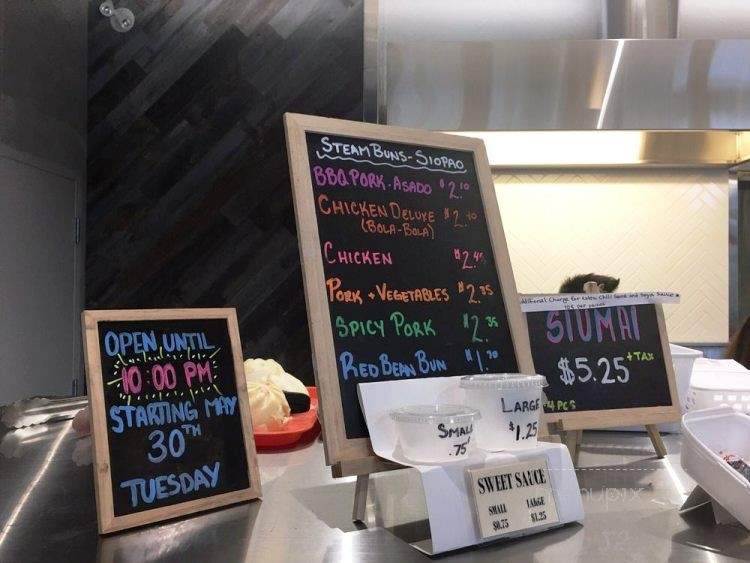 OPEN UNTIL
10:00 PM
STARTING MAY
30TH
TUESDAY
STEAM BUNS - SIOPAO
BBQ PORK - ASADO $2.10
CHICKEN DELUXE $2.40
(BOLA-BOLA)
CHICKEN $2.45
PORK + VEGETABLES $2.35
SPICY PORK $2.35
RED BEAN BUN $1.70
SMALL
.75
LARGE
$1.25
SWEET SAUCE
SMALL LARGE
$0.75 $1.25
Additional Charge for Extra Chili Sauce and Soya Sauce
10¢ per
SIUMAI
$5.25 +TAX
4 PCS
menupix